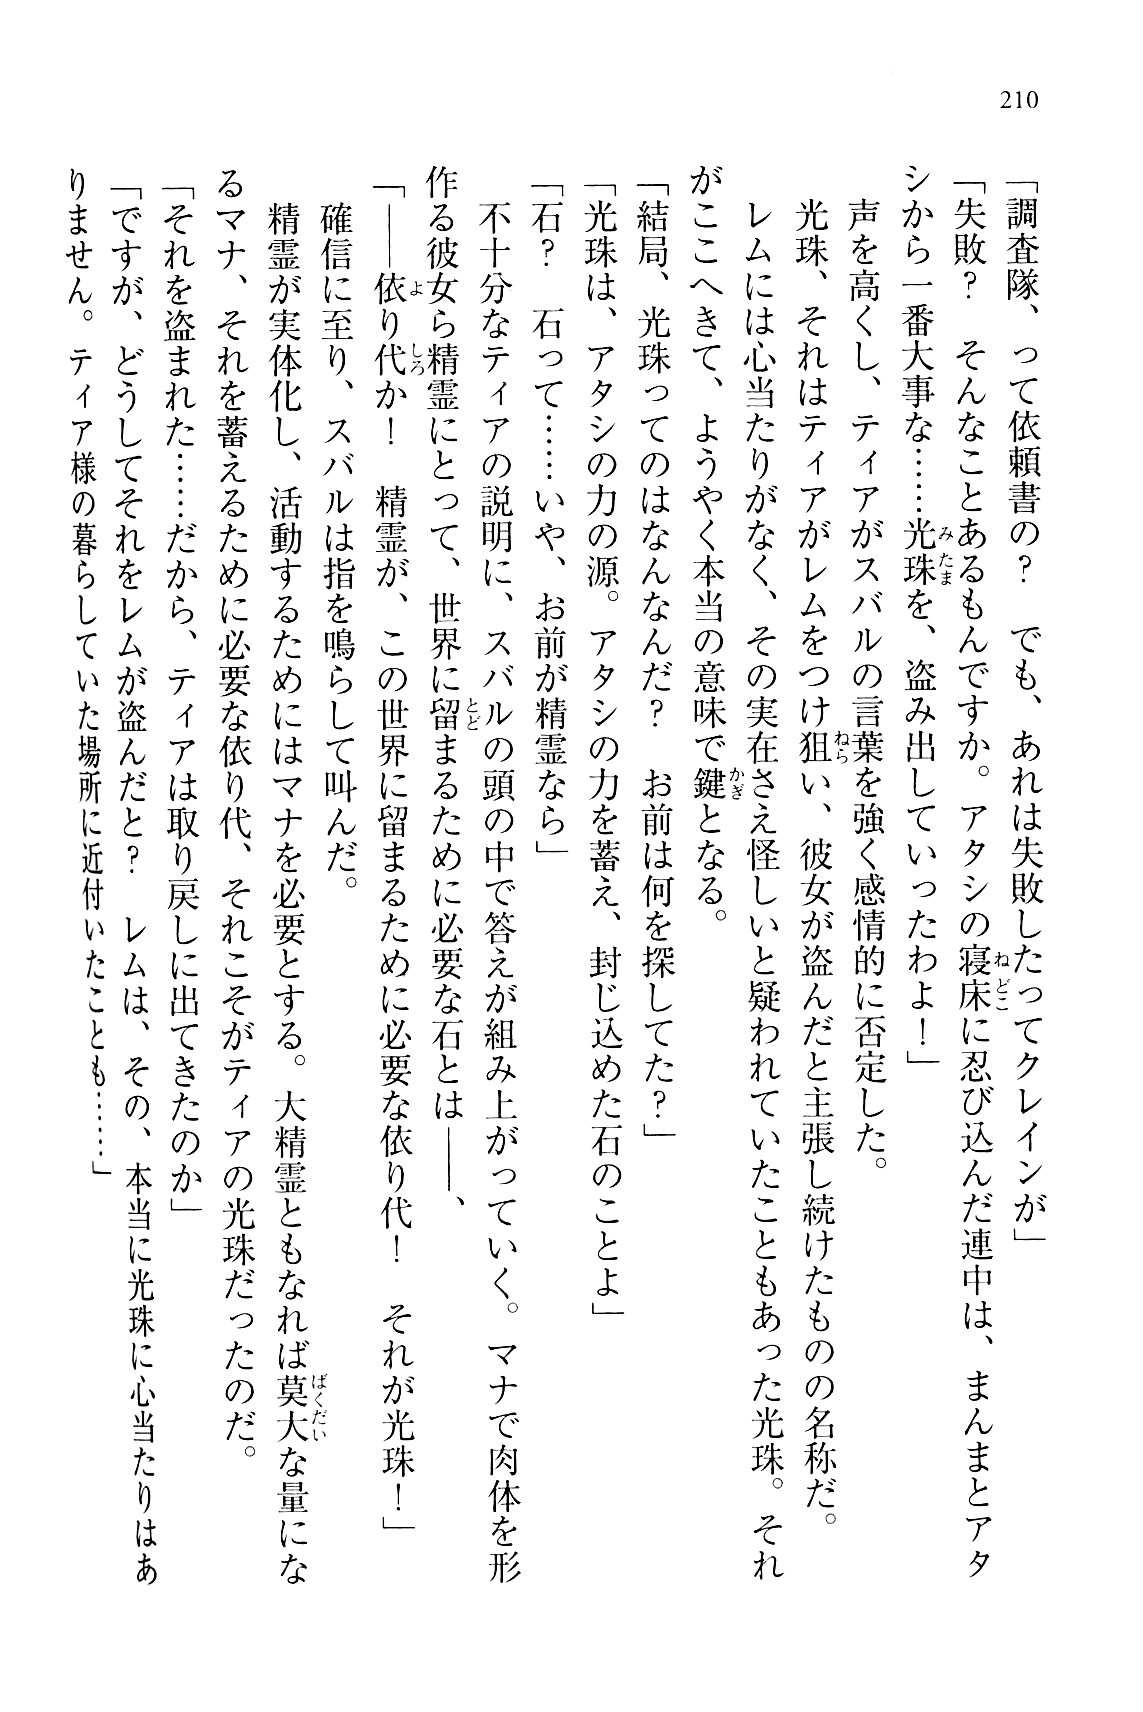 210
「調査隊、って依頼書の？　でも、あれは失敗したってクレインが」
「失敗？　そんなことあるもんですか。アタシの寝床に忍び込んだ連中は、まんまとアタ
シから一番大事な……光珠を、盗み出していったわよ！」
　声を高くし、ティアがスバルの言葉を強く感情的に否定した。
　光珠、それはティアがレムをつけ狙い、彼女が盗んだと主張し続けたものの名称だ。
　レムには心当たりがなく、その実在さえ怪しいと疑われていたこともあった光珠。それ
がここへきて、ようやく本当の意味で鍵となる。
「結局、光珠ってのはなんなんだ？　お前は何を探してた？」
「光珠は、アタシの力の源。アタシの力を蓄え、封じ込めた石のことよ」
「石？　石って……いや、お前が精霊なら」
　不十分なティアの説明に、スバルの頭の中で答えが組み上がっていく。マナで肉体を形
作る彼女ら精霊にとって、世界に留まるために必要な石とは――、
「――依り代か！　精霊が、この世界に留まるために必要な依り代！　それが光珠！」
　確信に至り、スバルは指を鳴らして叫んだ。
　精霊が実体化し、活動するためにはマナを必要とする。大精霊ともなれば莫大な量にな
るマナ、それを蓄えるために必要な依り代、それこそがティアの光珠だったのだ。
「それを盗まれた……だから、ティアは取り戻しに出てきたのか」
「ですが、どうしてそれをレムが盗んだと？　レムは、その、本当に光珠に心当たりはあ
りません。ティア様の暮らしていた場所に近付いたことも……」